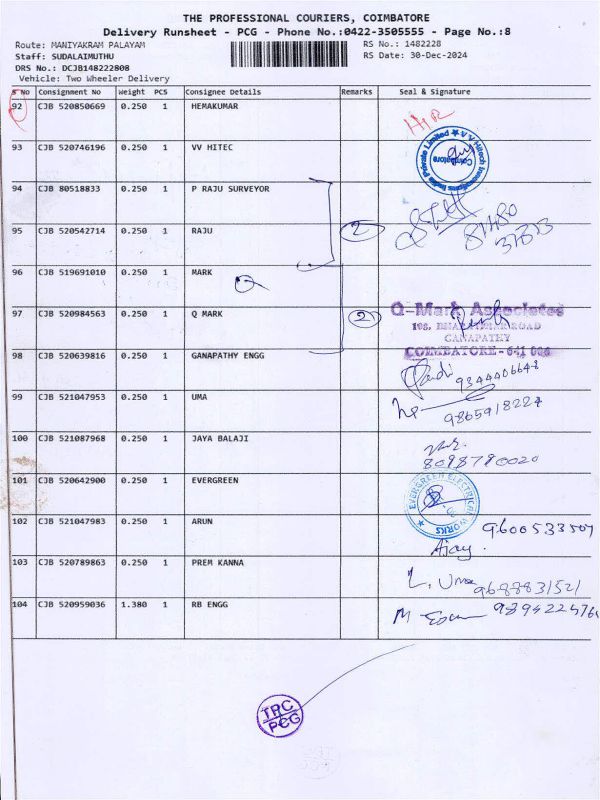 THE PROFESSIONAL COURIERS, COIMBATORE
Delivery Runsheet - PCG - Phone No.:0422-3505555 - Page No.:8
Route: MANIYAKRAM PALAYAM RS No.: 1482228
Staff: SUDALAIMUTHU RS Date: 30-Dec-2024
DRS No.: DCJB148222808
Vehicle: Two Wheeler Delivery
S No Consignment No Weight PCS Consignee Details Remarks Seal & Signature
92 CJB 520850669 0.250 1 HEMAKUMAR
93 CJB 520746196 0.250 1 VV HITEC
V V Hitech Innovations India Private Limited
Coimbatore
94 CJB 80518833 0.250 1 P RAJU SURVEYOR
95 CJB 520542714 0.250 1 RAJU 2
96 CJB 519691010 0.250 1 MARK
Q
97 CJB 520984563 0.250 1 Q MARK 2
Q-Mark Associates
ROAD
GANAPATHY
COIMBATORE - 641 006
98 CJB 520639816 0.250 1 GANAPATHY ENGG
9344406648
99 CJB 521047953 0.250 1 UMA
9865918227
100 CJB 521087968 0.250 1 JAYA BALAJI
8098790020
101 CJB 520642900 0.250 1 EVERGREEN
EVERGREEN ELECTRICAL WORKS
102 CJB 521047983 0.250 1 ARUN 9600533507
Ajay.
103 CJB 520789863 0.250 1 PREM KANNA
L. Uma 9688831521
104 CJB 520959036 1.380 1 RB ENGG
M
TRC
PCG